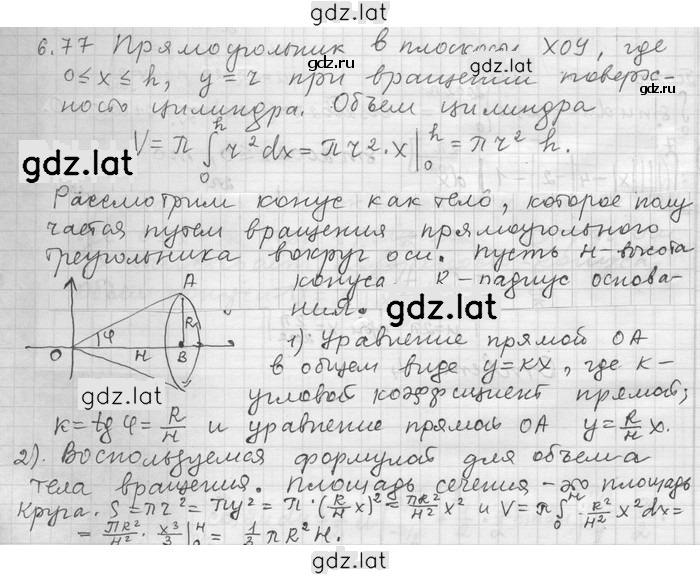 gdz.lat
6.77 Прямоугольник в плоскости XOY, где
0≤x≤h, y=r при вращении поверх-
gdz.lat
ность цилиндра. Объем цилиндра
V=π∫₀ʰ r²dx=πr²·x|₀ʰ=πr² h.
gdz.lat
Рассмотрим конус как тело, которое полу
чается путем вращения прямоугольного
треугольника вокруг оси. Пусть H-высота
конуса R-радиус основа-
ния.
gdz.lat
A
φ
R
O
H
B
1) Уравнение прямой OA
в общем виде y=кx, где к-
gdz.lat
угловой коэффициент прямой;
к=tgφ=R/H и уравнение прямой OA y=R/H x.
2). Воспользуемся формулой для объема
тела вращения. Площадь сечения - это площадь
круга. S=πr²=πy²=π·(R/H x)²=πR²/H² x² и V=π∫₀ᴴ R²/H² x²dx=
=πR²/H²·x³/3|₀ᴴ=1/3 πR²H.
gdz.lat